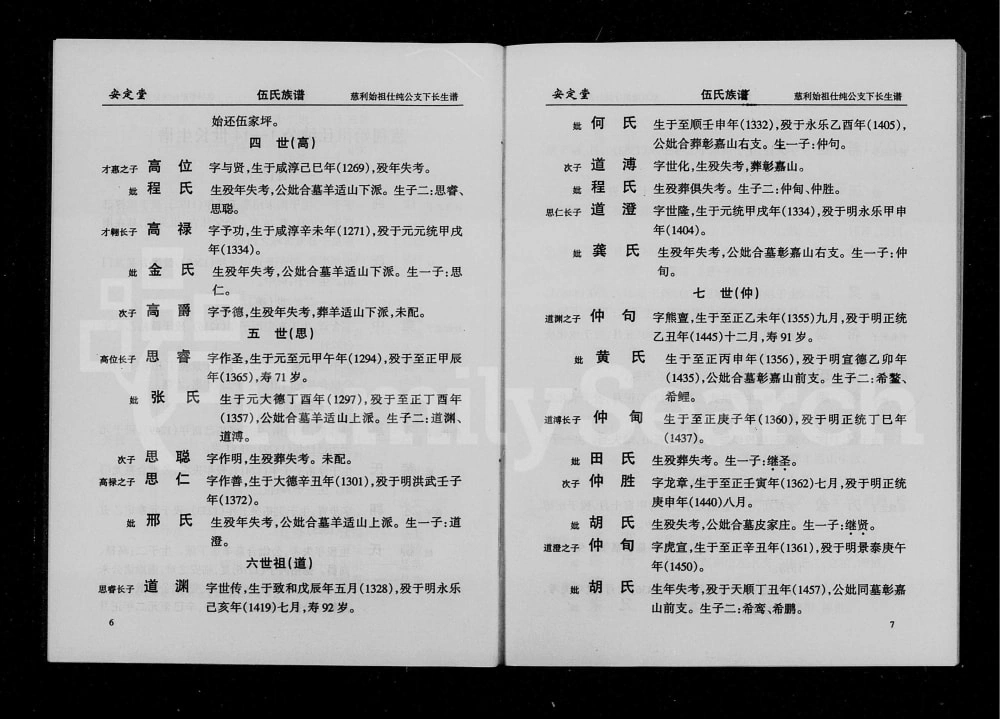 安定堂 伍氏族谱 慈利始祖仕纯公支下长生谱
始还伍家坪。
四 世(高)
才嘉之子 高 位 字与贤,生于咸淳己巳年(1269),殁年失考。
妣 程 氏 生殁年失考,公妣合墓羊适山下派。生子二:思睿、
思聪。
才翱长子 高 禄 字予功,生于咸淳辛未年(1271),殁于元元统甲戌
年(1334)。
妣 金 氏 生殁年失考,公妣合墓羊适山下派。生一子:思
仁。
次子 高 爵 字予德,生殁年失考,葬羊适山下派,未配。
五 世(思)
高位长子 思 睿 字作圣,生于元至元甲午年(1294),殁于至正甲辰
年(1365),寿71岁。
妣 张 氏 生于元大德丁酉年(1297),殁于至正丁酉年
(1357),公妣合墓羊适山上派。生子二:道渊、
道溥。
次子 思 聪 字作明,生殁葬失考。未配。
高禄之子 思 仁 字作善,生于大德辛丑年(1301),殁于明洪武壬子
年(1372)。
妣 邢 氏 生殁年失考,公妣合墓羊适山上派。生一子:道
澄。
六世祖(道)
思睿长子 道 渊 字世传,生于致和戊辰年五月(1328),殁于明永乐
己亥年(1419)七月,寿92岁。
6
安定堂 伍氏族谱 慈利始祖仕纯公支下长生谱
妣 何 氏 生于至顺壬申年(1332),殁于永乐乙酉年(1405),
公妣合葬彰嘉山右支。生一子:仲句。
次子 道 溥 字世化,生殁失考,葬彰嘉山。
妣 程 氏 生殁葬俱失考。生子二:仲甸、仲胜。
思仁长子 道 澄 字世隆,生于元统甲戌年(1334),殁于明永乐甲申
年(1404)。
妣 龚 氏 生殁年失考,公妣合墓彰嘉山右支。生一子:仲
旬。
七 世(仲)
道渊之子 仲 句 字熊亶,生于至正乙未年(1355)九月,殁于明正统
乙丑年(1445)十二月,寿91岁。
妣 黄 氏 生于至正丙申年(1356),殁于明宣德乙卯年
(1435),公妣合墓彰嘉山前支。生子二:希鳌、
希鲤。
道溥长子 仲 甸 生于至正庚子年(1360),殁于明正统丁巳年
(1437)。
妣 田 氏 生殁葬失考。生一子:继圣。
次子 仲 胜 字龙章,生于至正壬寅年(1362)七月,殁于明正统
庚申年(1440)八月。
妣 胡 氏 生殁失考,公妣合墓皮家庄。生一子:继贤。
道澄之子 仲 旬 字虎宣,生于至正辛丑年(1361),殁于明景泰庚午
年(1450)。
妣 胡 氏 生年失考,殁于天顺丁丑年(1457),公妣同墓彰嘉
山前支。生子二:希鸾、希鹏。
7
FamilySearch